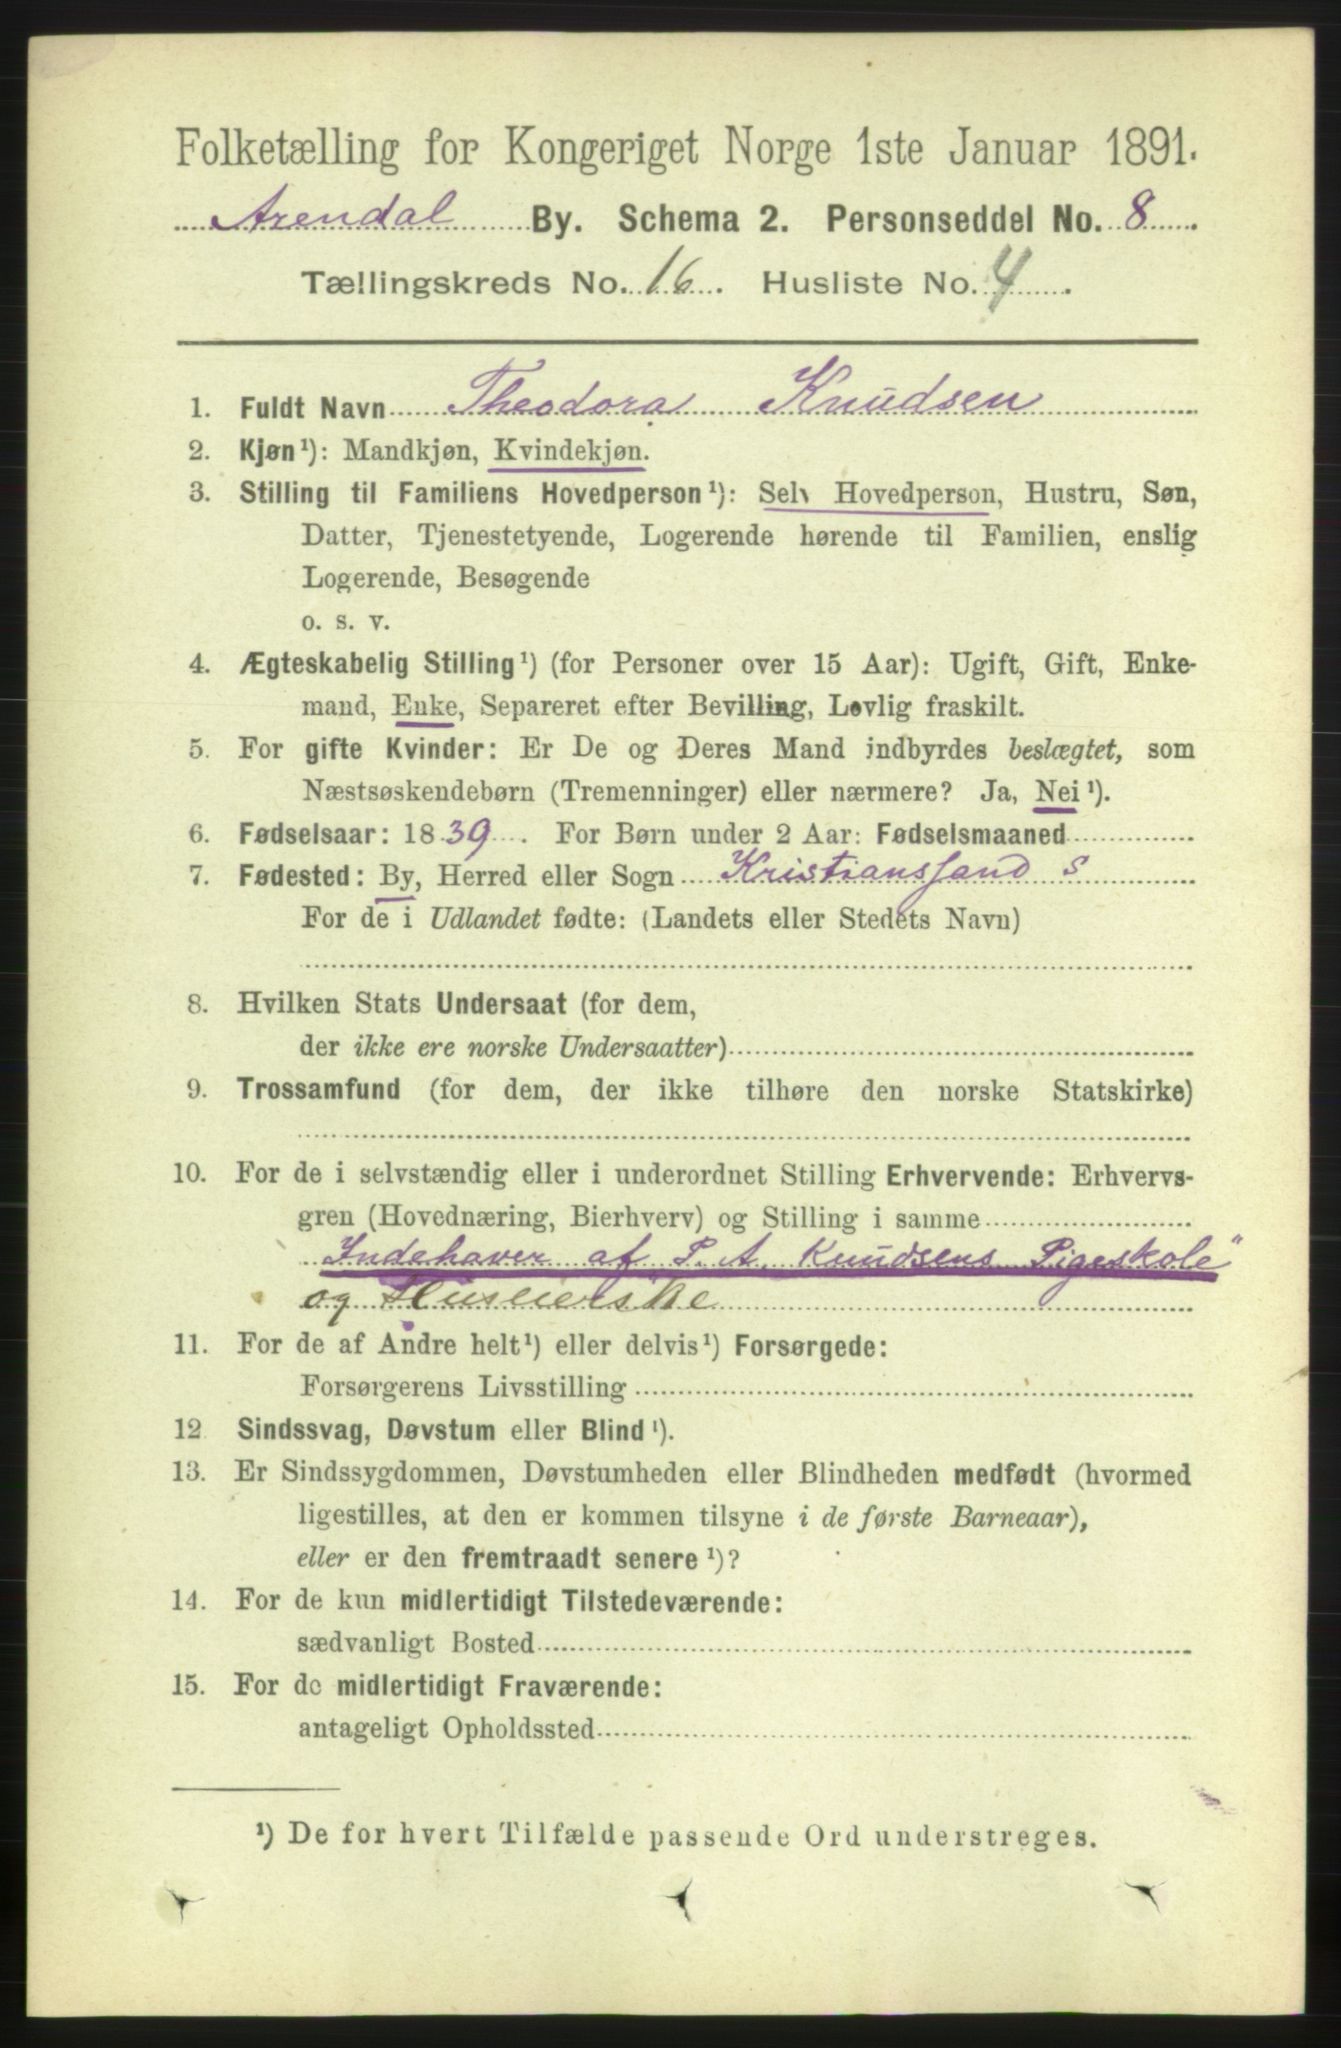 Folketælling for Kongeriget Norge 1ste Januar 1891.
Arendal By. Schema 2. Personseddel No. 8
Tællingskreds No. 16. Husliste No. 4.
1. Fuldt Navn Theodora Knudsen
2. Kjøn¹): Mandkjøn, Kvindekjøn.
3. Stilling til Familiens Hovedperson¹): Selv Hovedperson, Hustru, Søn,
Datter, Tjenestetyende, Logerende hørende til Familien, enslig
Logerende, Besøgende
o. s. v.
4. Ægteskabelig Stilling¹) (for Personer over 15 Aar): Ugift, Gift, Enke-
mand, Enke, Separeret efter Bevilling, Lovlig fraskilt.
5. For gifte Kvinder: Er De og Deres Mand indbyrdes beslægtet, som
Næstsøskendebørn (Tremenninger) eller nærmere? Ja, Nei¹).
6. Fødselsaar: 1839. For Børn under 2 Aar: Fødselsmaaned
7. Fødested: By, Herred eller Sogn Kristianssand S
For de i Udlandet fødte: (Landets eller Stedets Navn)
8. Hvilken Stats Undersaat (for dem,
der ikke ere norske Undersaatter)
9. Trossamfund (for dem, der ikke tilhøre den norske Statskirke)
10. For de i selvstændig eller i underordnet Stilling Erhvervende: Erhvervs-
gren (Hovednæring, Bierhverv) og Stilling i samme
Indehaver af P. A. Knudsens Pigeskole"
og Huseierske
11. For de af Andre helt¹) eller delvis¹) Forsørgede:
Forsørgerens Livsstilling
12 Sindssvag, Døvstum eller Blind¹).
13. Er Sindssygdommen, Døvstumheden eller Blindheden medfødt (hvormed
ligestilles, at den er kommen tilsyne i de første Barneaar),
eller er den fremtraadt senere¹)?
14. For de kun midlertidigt Tilstedeværende:
sædvanligt Bosted
15. For de midlertidigt Fraværende:
antageligt Opholdssted
¹) De for hvert Tilfælde passende Ord understreges.